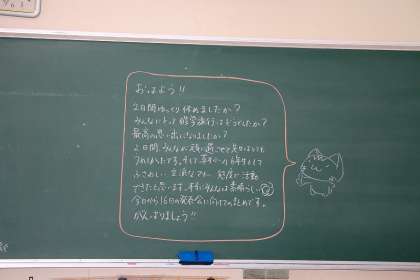 おはよう!!
2日間ゆっくり休めましたか?
みんなにとって修学旅行はどうでしたか?
最高の思い出になりましたか?
2日間、みんなが
うれしかったです。そして 6年生として
ふさわしい、立派な 態度で活動
できたと思います。本当にみんなは素晴らしい
今日から16日の発表会に向けてのまとめです。
がんばりましょう!!